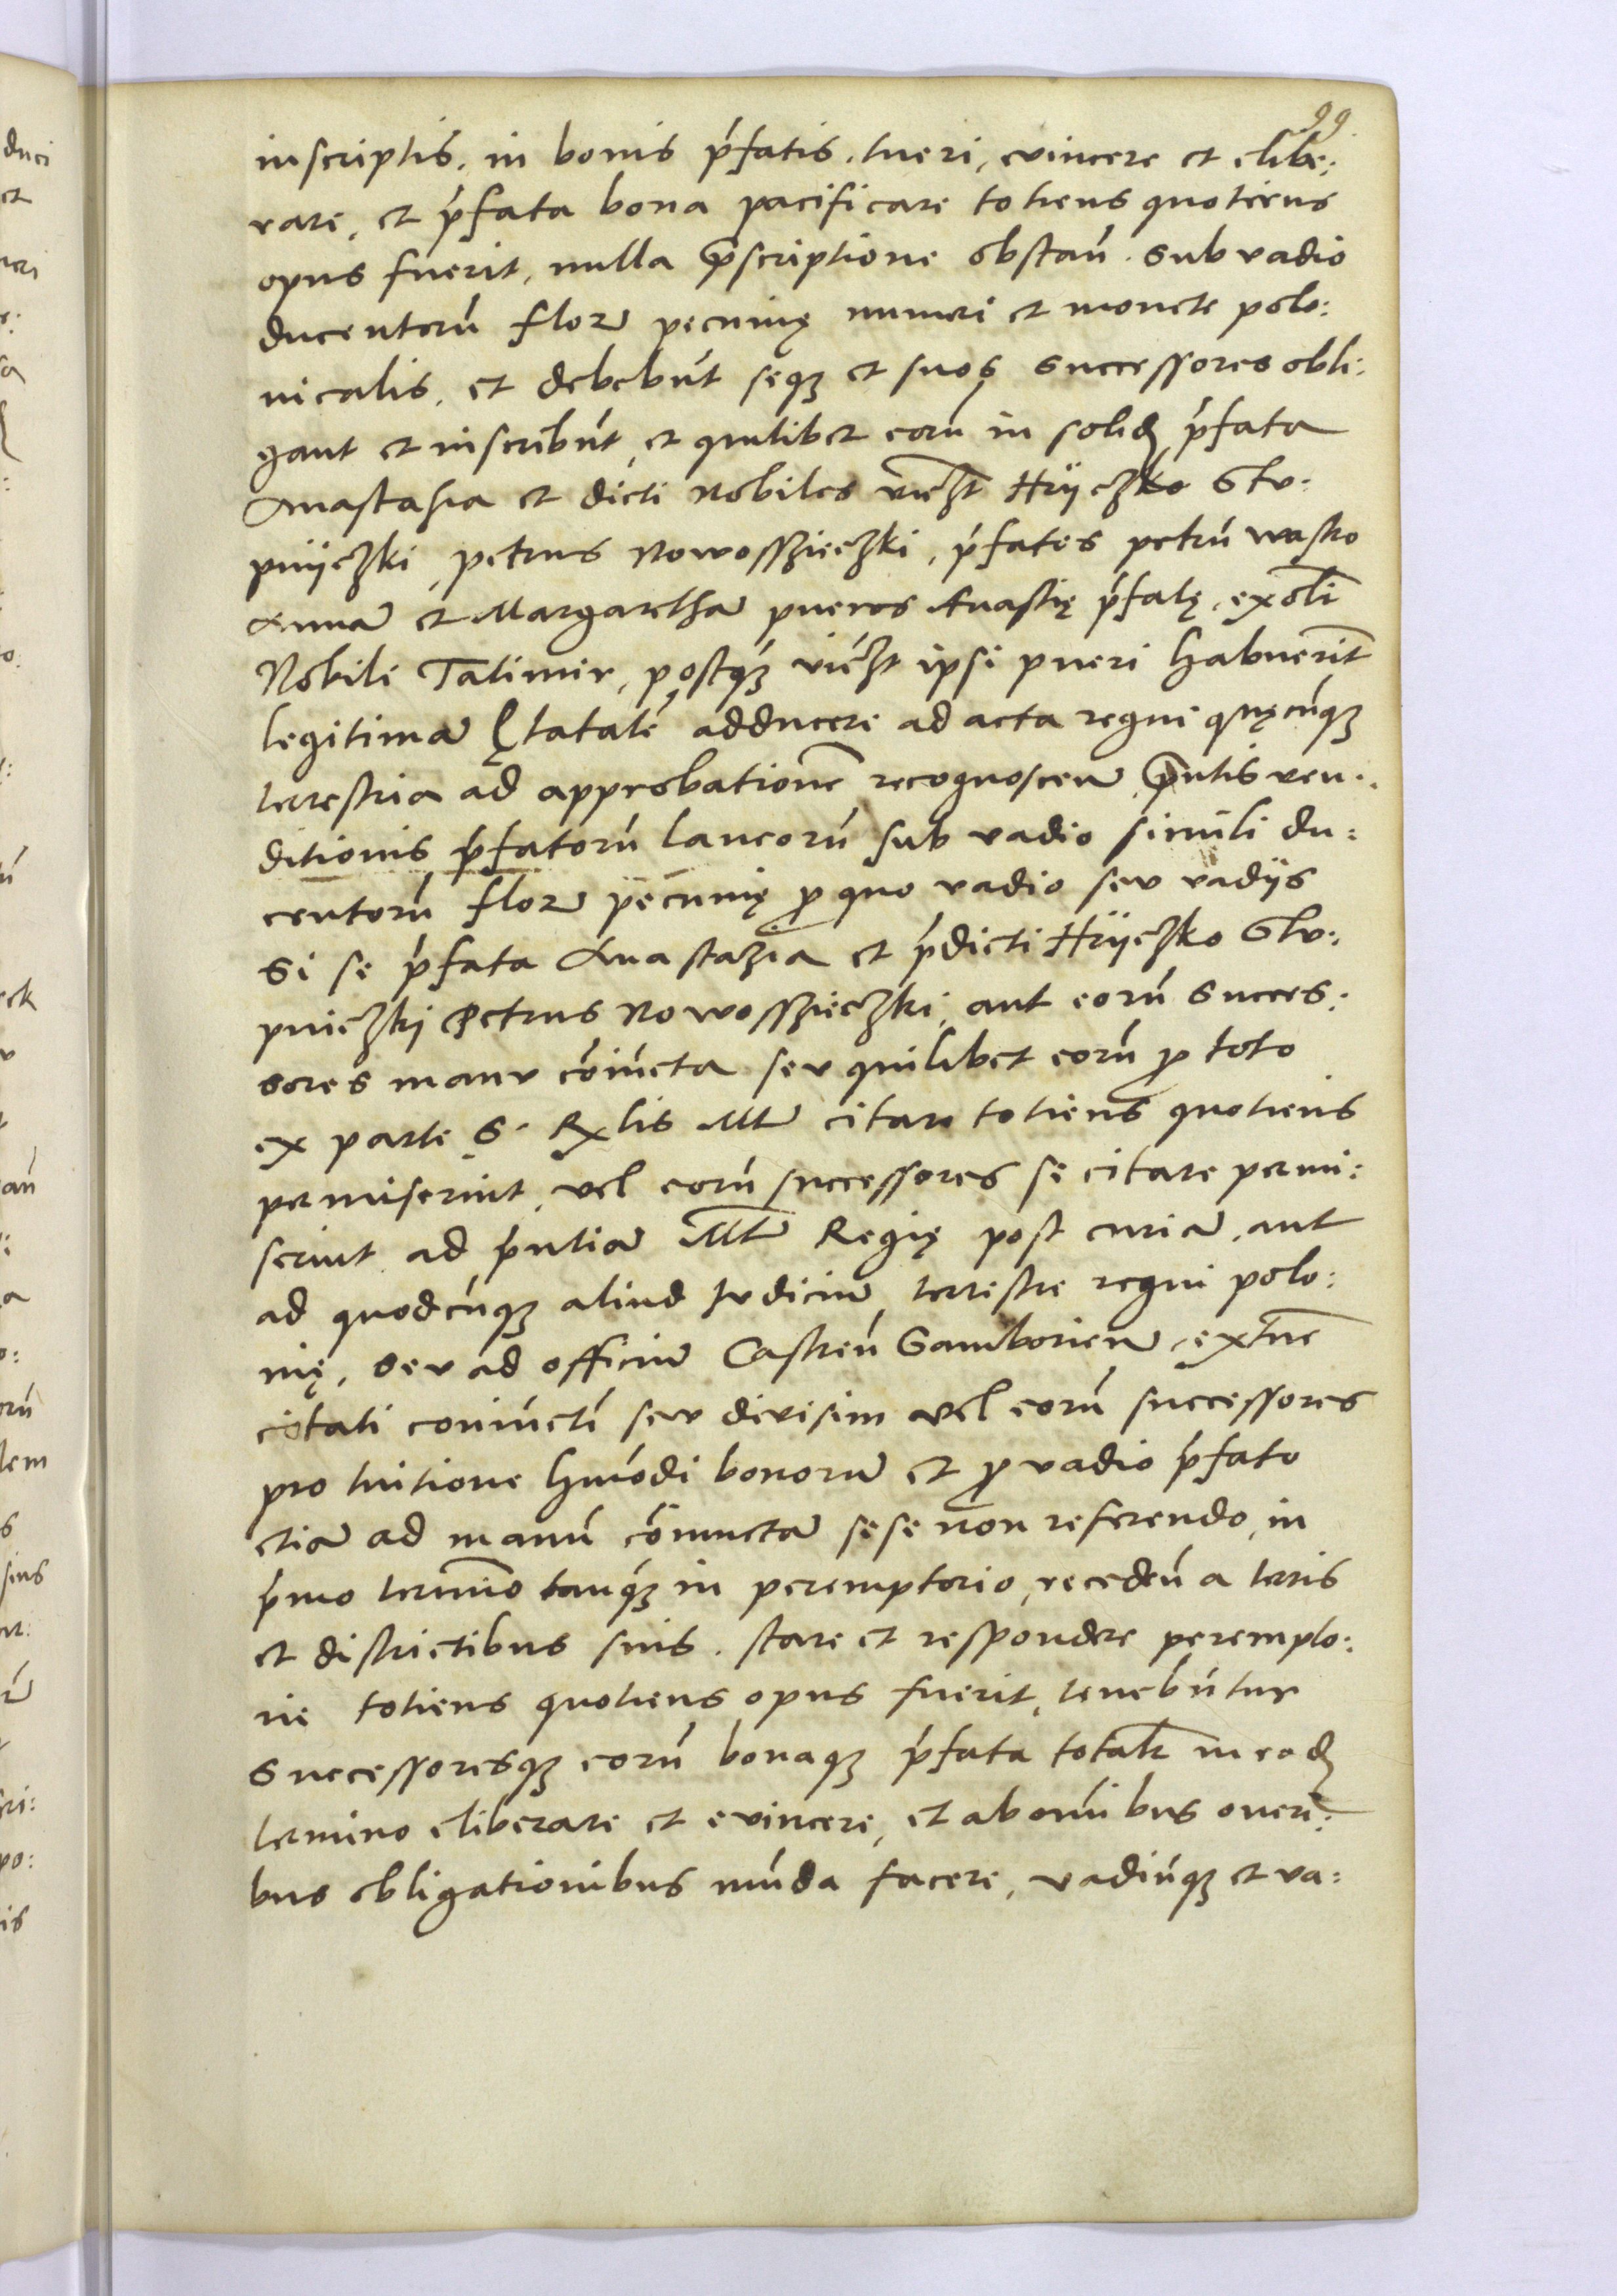 99
inscriptis, in bonis p̃fatis, tueri, evincere et elibe:
rare, et p̃fata bona pacificare totiens quotiens
opus fuerit, nulla p̃scriptione obstań. sub vadio
ducentorũ flor̃ pecunię numeri et monete polo:
nicalis, et debebũt seqȝ et suos successores obli:
gant et inscribũt, et quilibet eorũ in solidȝ p̃fata
Anastasia et dicti Nobiles viczt̃ Hrÿczko Stv:
pnÿczki, petrus Nowosszieczki, p̃fatos petrũ wasko
Annã et Margarethã pueros Anastię p̃fatę, ex olĩ
Nobili Tatimir, postq̃ȝ viczt̃ ipsi pueri habuerint̃
legitimã ętatatẽ adducere ad acta regni quęcũqȝ
terrestria ad approbationẽ recognoscen̄ p̃ntis ven:
ditionis p̃fatorũ laneorũ sub vadio simili du:
centorũ flor̃ pecunię ꝓ quo vadio sev vadÿs
si se p̃fata Anastazia et p̃dicti Hrÿczko Stv:
pniczkj Petrus Nowosszieczki, aut eorũ succes:
sores manv cõiũcta sev quilibet eorũ ꝓ toto
ex parte S. Rx̃lis Mt̃ citari totiens quotiens
permiserint, vel eorũ successores se citare permi:
serint ad p̃ntiã Mt̃ Regię post curiã, aut
ad quodcũqȝ aliud Jvdiciũ terrestre regni polo:
nię, sev ad officiũ Castreń Samborień, ex tũc
citati coniũctĩ sev divisim vel eorũ successores
pro tuitione hmõdi bonorũ et ꝓ vadio p̃fato
etiã ad manũ cõiunctã sese non referendo, in
p̃mo termĩo tanq̃ȝ in peremptorio, recedeń a terris
et districtibus suis, stare et respondere perempto:
rie totiens quotiens opus fuerit, tenebũtur
successoresqȝ eorũ bonaqȝ p̃fata totalr̃ in eodȝ
termino eliberare et evincere, et ab omĩbus oneri:
bus obligationibus mũda facere, vadiũqȝ et va: